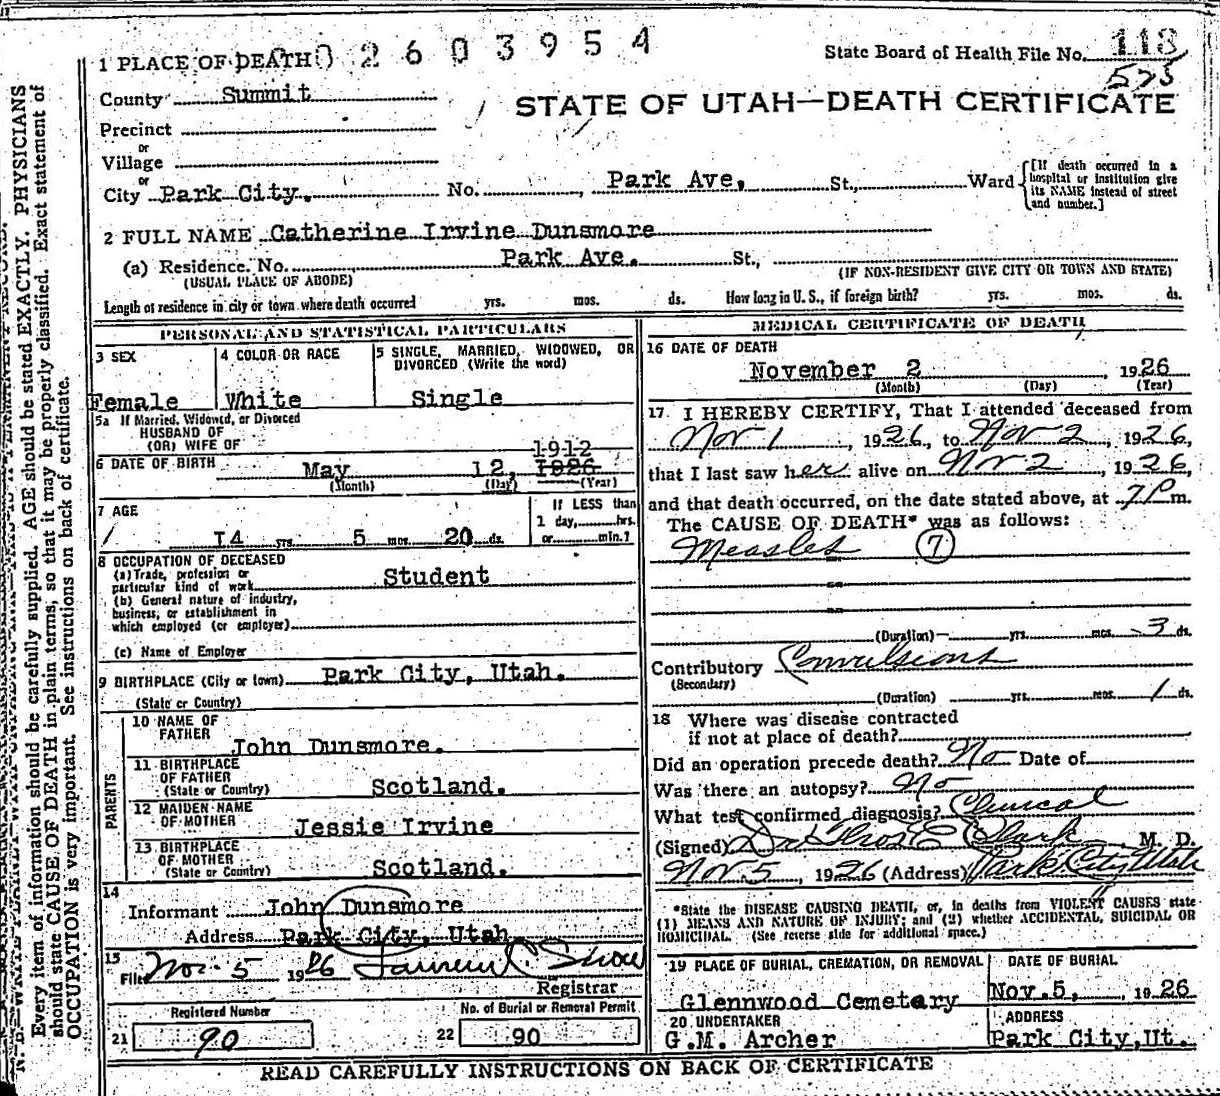 1 PLACE OF DEATH 0 2 6 0 3 9 5 4 State Board of Health File No. 118
575
County Summit
STATE OF UTAH—DEATH CERTIFICATE
Precinct
or
Village
or
City Park City. No. , Park Ave, St., Ward [If death occurred in a hospital or institution give its NAME instead of street and number.]
2 FULL NAME Catherine Irvine Dunsmore
(a) Residence. No. , Park Ave. St.,
(USUAL PLACE OF ABODE) (IF NON-RESIDENT GIVE CITY OR TOWN AND STATE)
Length of residence in city or town where death occurred yrs. mos. ds. How long in U. S., if foreign birth? yrs. mos. ds.
PERSONAL AND STATISTICAL PARTICULARS
3 SEX 4 COLOR OR RACE 5 SINGLE, MARRIED, WIDOWED, OR
DIVORCED (Write the word)
Female White Single
5a If Married, Widowed, or Divorced
HUSBAND OF
(OR) WIFE OF
1912
6 DATE OF BIRTH May 12, 1926
(Month) (Day) (Year)
7 AGE If LESS than
1 day, hrs.
14 yrs. 5 mos. 20 ds. or min.?
8 OCCUPATION OF DECEASED
(a) Trade, profession or
particular kind of work Student
(b) General nature of industry,
business, or establishment in
which employed (or employer)
(c) Name of Employer
9 BIRTHPLACE (City or town) Park City, Utah.
(State or Country)
PARENTS
10 NAME OF
FATHER John Dunsmore.
11 BIRTHPLACE
OF FATHER
(State or Country) Scotland.
12 MAIDEN NAME
OF MOTHER Jessie Irvine
13 BIRTHPLACE
OF MOTHER
(State or Country) Scotland.
14
Informant John Dunsmore
Address Park City, Utah
15
Filed Nov. 5 1926
Registrar
Registered Number No. of Burial or Removal Permit
21 90 22 90
MEDICAL CERTIFICATE OF DEATH
16 DATE OF DEATH
November 2 1926
(Month) (Day) (Year)
17. I HEREBY CERTIFY, That I attended deceased from
Nov 1, 1926, to Nov 2, 1926,
that I last saw her alive on Nov 2, 1926,
and that death occurred, on the date stated above, at 7 P m.
The CAUSE OF DEATH* was as follows:
Measles 7
(Duration) yrs. mos. 3 ds.
Contributory Convulsions
(Secondary)
(Duration) yrs. mos. 1 ds.
18 Where was disease contracted
if not at place of death?
Did an operation precede death? No Date of
Was there an autopsy? No
What test confirmed diagnosis? Clinical
(Signed) Dr Thos E Clark M. D.
Nov. 5, 1926 (Address) Park City Utah
*State the DISEASE CAUSING DEATH, or, in deaths from VIOLENT CAUSES state
(1) MEANS AND NATURE OF INJURY; and (2) whether ACCIDENTAL, SUICIDAL OR
HOMICIDAL. (See reverse side for additional space.)
19 PLACE OF BURIAL, CREMATION, OR REMOVAL DATE OF BURIAL
Glennwood Cemetary Nov. 5, 1926
20 UNDERTAKER ADDRESS
G.M. Archer Park City, Ut.
READ CAREFULLY INSTRUCTIONS ON BACK OF CERTIFICATE
Every item of information should be carefully supplied. AGE should be stated EXACTLY. PHYSICIANS
should state CAUSE OF DEATH in plain terms, so that it may be properly classified. Exact statement of
OCCUPATION is very important. See instructions on back of certificate.